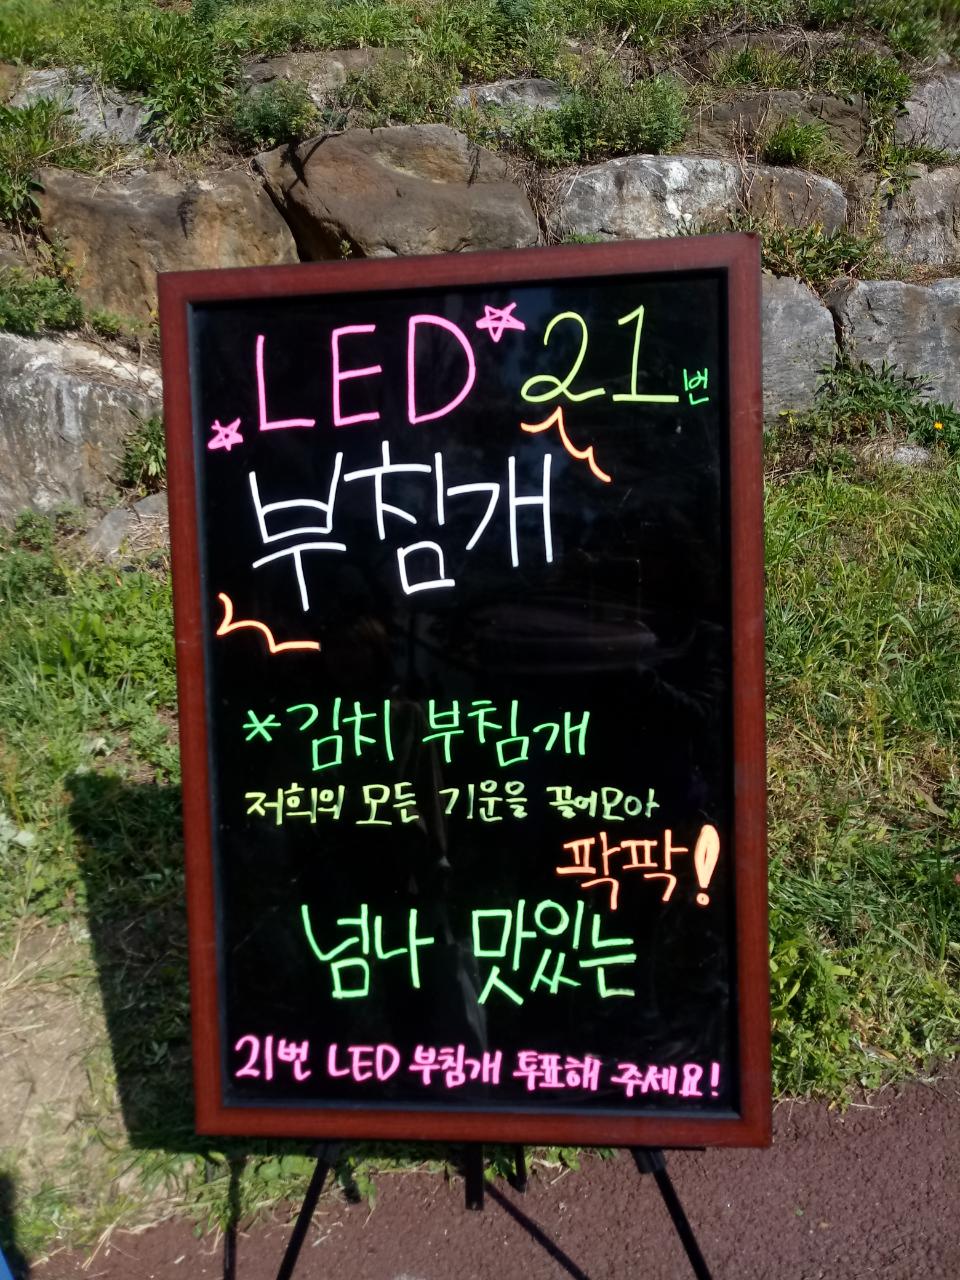 LED 21번
부침개
*김치 부침개
저희의 모든 기운을 끌어모아
팍팍!
넘나 맛있는
21번 LED 부침개 투표해 주세요!